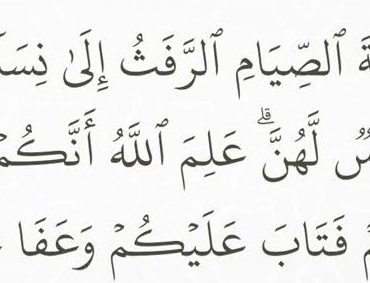 ةَ ٱلصِّيَامِ ٱلرَّفَثُ إِلَىٰ نِسَا
سٌ لَّهُنَّۗ عَلِمَ ٱللَّهُ أَنَّكُمۡ
مۡ فَتَابَ عَلَيۡكُمۡ وَعَفَا